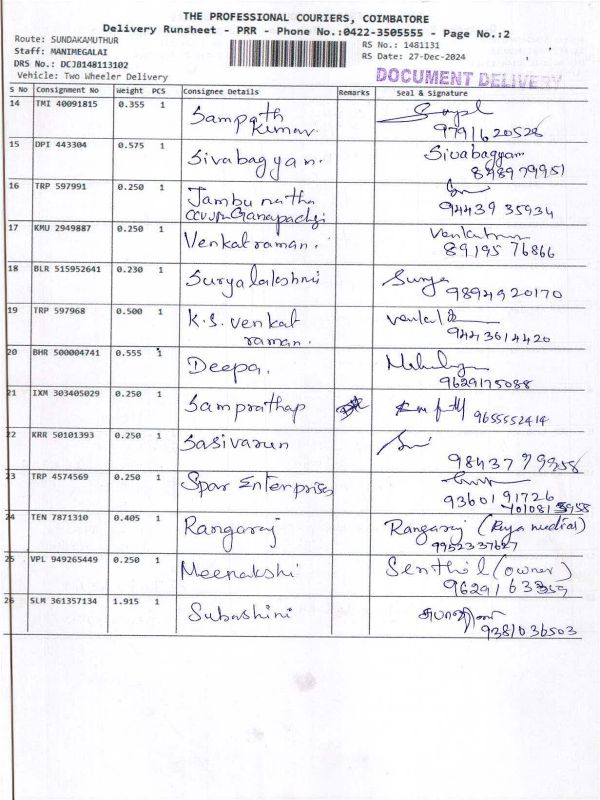 THE PROFESSIONAL COURIERS, COIMBATORE
Delivery Runsheet - PRR - Phone No.:0422-3505555 - Page No.:2
Route: SUNDAKAMUTHUR
RS No.: 1481131
Staff: MANIMEGALAI
RS Date: 27-Dec-2024
DRS No.: DCJB148113102
DOCUMENT DELIVERY
Vehicle: Two Wheeler Delivery
S No Consignment No Weight PCS Consignee Details Remarks Seal & Signature
14 TMI 40091815 0.355 1 Sampath
Kumar. 9791620528
15 DPI 443304 0.575 1 Sivabagyan. Sivabagyam
848979951
16 TRP 597991 0.250 1 Jambu natha
Ganapachzi 94439 35934
17 KMU 2949887 0.250 1 Venkatraman.
89195 76866
18 BLR 515952641 0.230 1 Suryalakshmi Surya
9894920170
19 TRP 597968 0.500 1 K.S. Venkat
raman. 9443614420
20 BHR 500004741 0.555 1 Deepa.
9629175088
21 IXM 303405029 0.250 1 Samprathap 9655552414
22 KRR 50101393 0.250 1 Sasivarun
98437 79858
23 TRP 4574569 0.250 1 Spar Enterprises
93601 91726
24 TEN 7871310 0.405 1 Rangaraj Rangaraj
9952337627
25 VPL 949265449 0.250 1 Meenakshi Senthil (owner)
9629163359
26 SLM 361357134 1.915 1 Subashini
9381036503